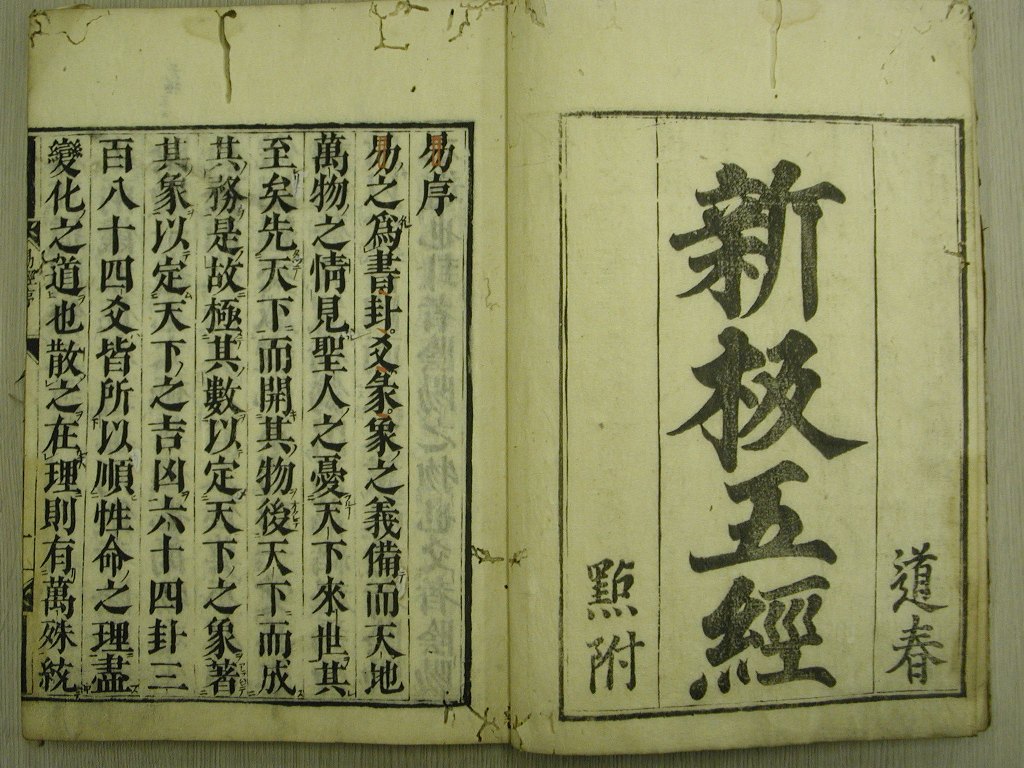 道春
新板五經
點附
易序
易之爲書卦爻彖象之義備而天地
萬物之情見聖人之憂天下來世其
至矣先天下而開其物後天下而成
其務是故極其數以定天下之象著
其象以定天下之吉凶六十四卦三
百八十四爻皆所以順性命之理盡
變化之道也散之在理則有萬殊統